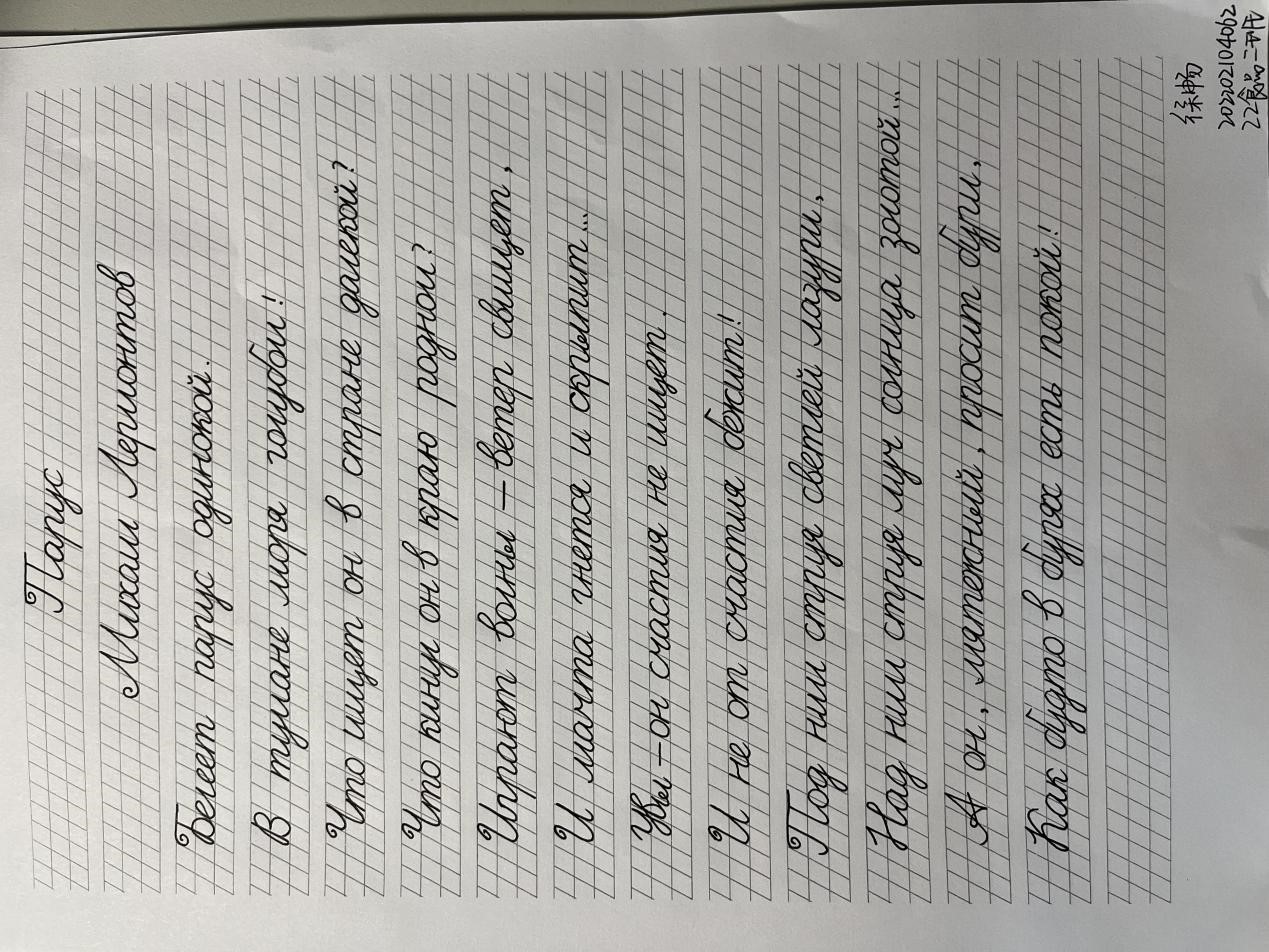 Парус
Михаил Лермонтов
Белеет парус одинокой.
В тумане моря голубом!
Что ищет он в стране далекой?
Что кинул он в краю родном?
Играют волны – ветер свищет,
И мачта гнется и скрыпит...
Увы – он счастия не ищет.
И не от счастия бежит!
Под ним струя светлей лазури,
Над ним струя луч солнца золотой...
А он, мятежный, просит бури,
Как будто в бурях есть покой!
徐畅
202202104062
22食品二班